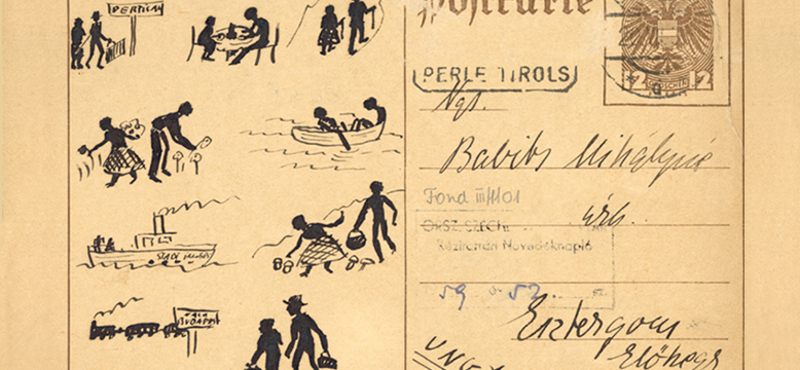 PERTISAU
Postkarte
12 12
PERLE TIROLS
Ngs.
Babits Mihályné
Fond III/1101
úrh.
ORSZ. SZÉCH.
Kézirattári Növedéknapló
59 52
Esztergom
Előhegy
BUDAPEST